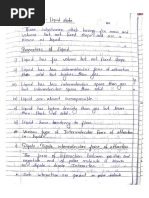 Liquid state
Those substances which having fix mass and
volume but not fixed shape are
known as liquid.
Properties of Liquid
Liquid has fix volume but not fixed shape.
Liquid has less intermolecular force of attraction
than solid but higher than gas.
Liquid has less intermolecular space than gas
but intermolecular space than solid.
Liquid are almost incompressible.
Liquid has higher density than gas but lower
than solid.
Liquid have tendency to flow.
Various type of Intermolecular force of attraction
in liquid:-
Dipole-Dipole intermolecular force of attraction
The force of attraction between positive and
negative end of polar molecule is called
Dipole-Dipole
Such interaction are present in polar molecule